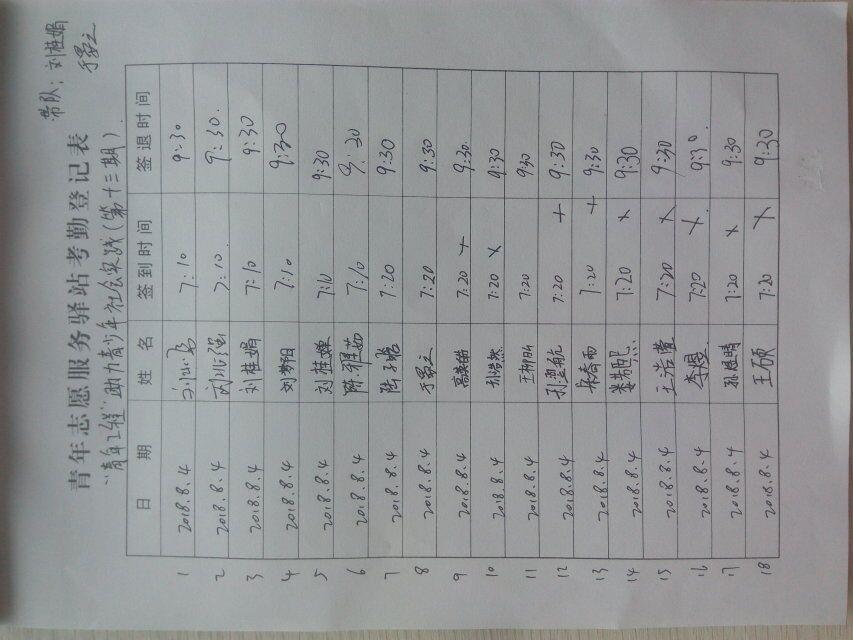 带队：刘桂娟
于景之
青年志愿服务驿站考勤登记表
"青年工程"助力青少年社会实践（第十三期）
日 期 姓 名 签到时间 签退时间
1 2018.8.4 7:10 9:30
2 2018.8.4 7:10. 9:30.
3 2018.8.4 刘桂娟 7:10 9:30
4 2018.8.4 刘梦阳 7:10 9:30
5 2018.8.4 刘桂婵 7:10 9:30
6 2018.8.4 陈雅茹 7:10 9:30
7 2018.8.4 7:20 9:30
8 2018.8.4 于景之 7:20 9:30
9 2018.8.4 高英皓 7:20 × 9:30
10 2018.8.4 7:20 × 9:30
11 2018.8.4 7:20 9:30
12 2018.8.4 7:20 × 9:30
13 2018.8.4 7:20 × 9:30
14 2018.8.4 7:20 × 9:30
15 2018.8.4 王浩萱 7:20 × 9:30
16 2018.8.4 李煜 7:20 × 9:30.
17 2018.8.4 孙煜晴 7:20 × 9:30
18 2018.8.4 王硕 7:20 × 9:30